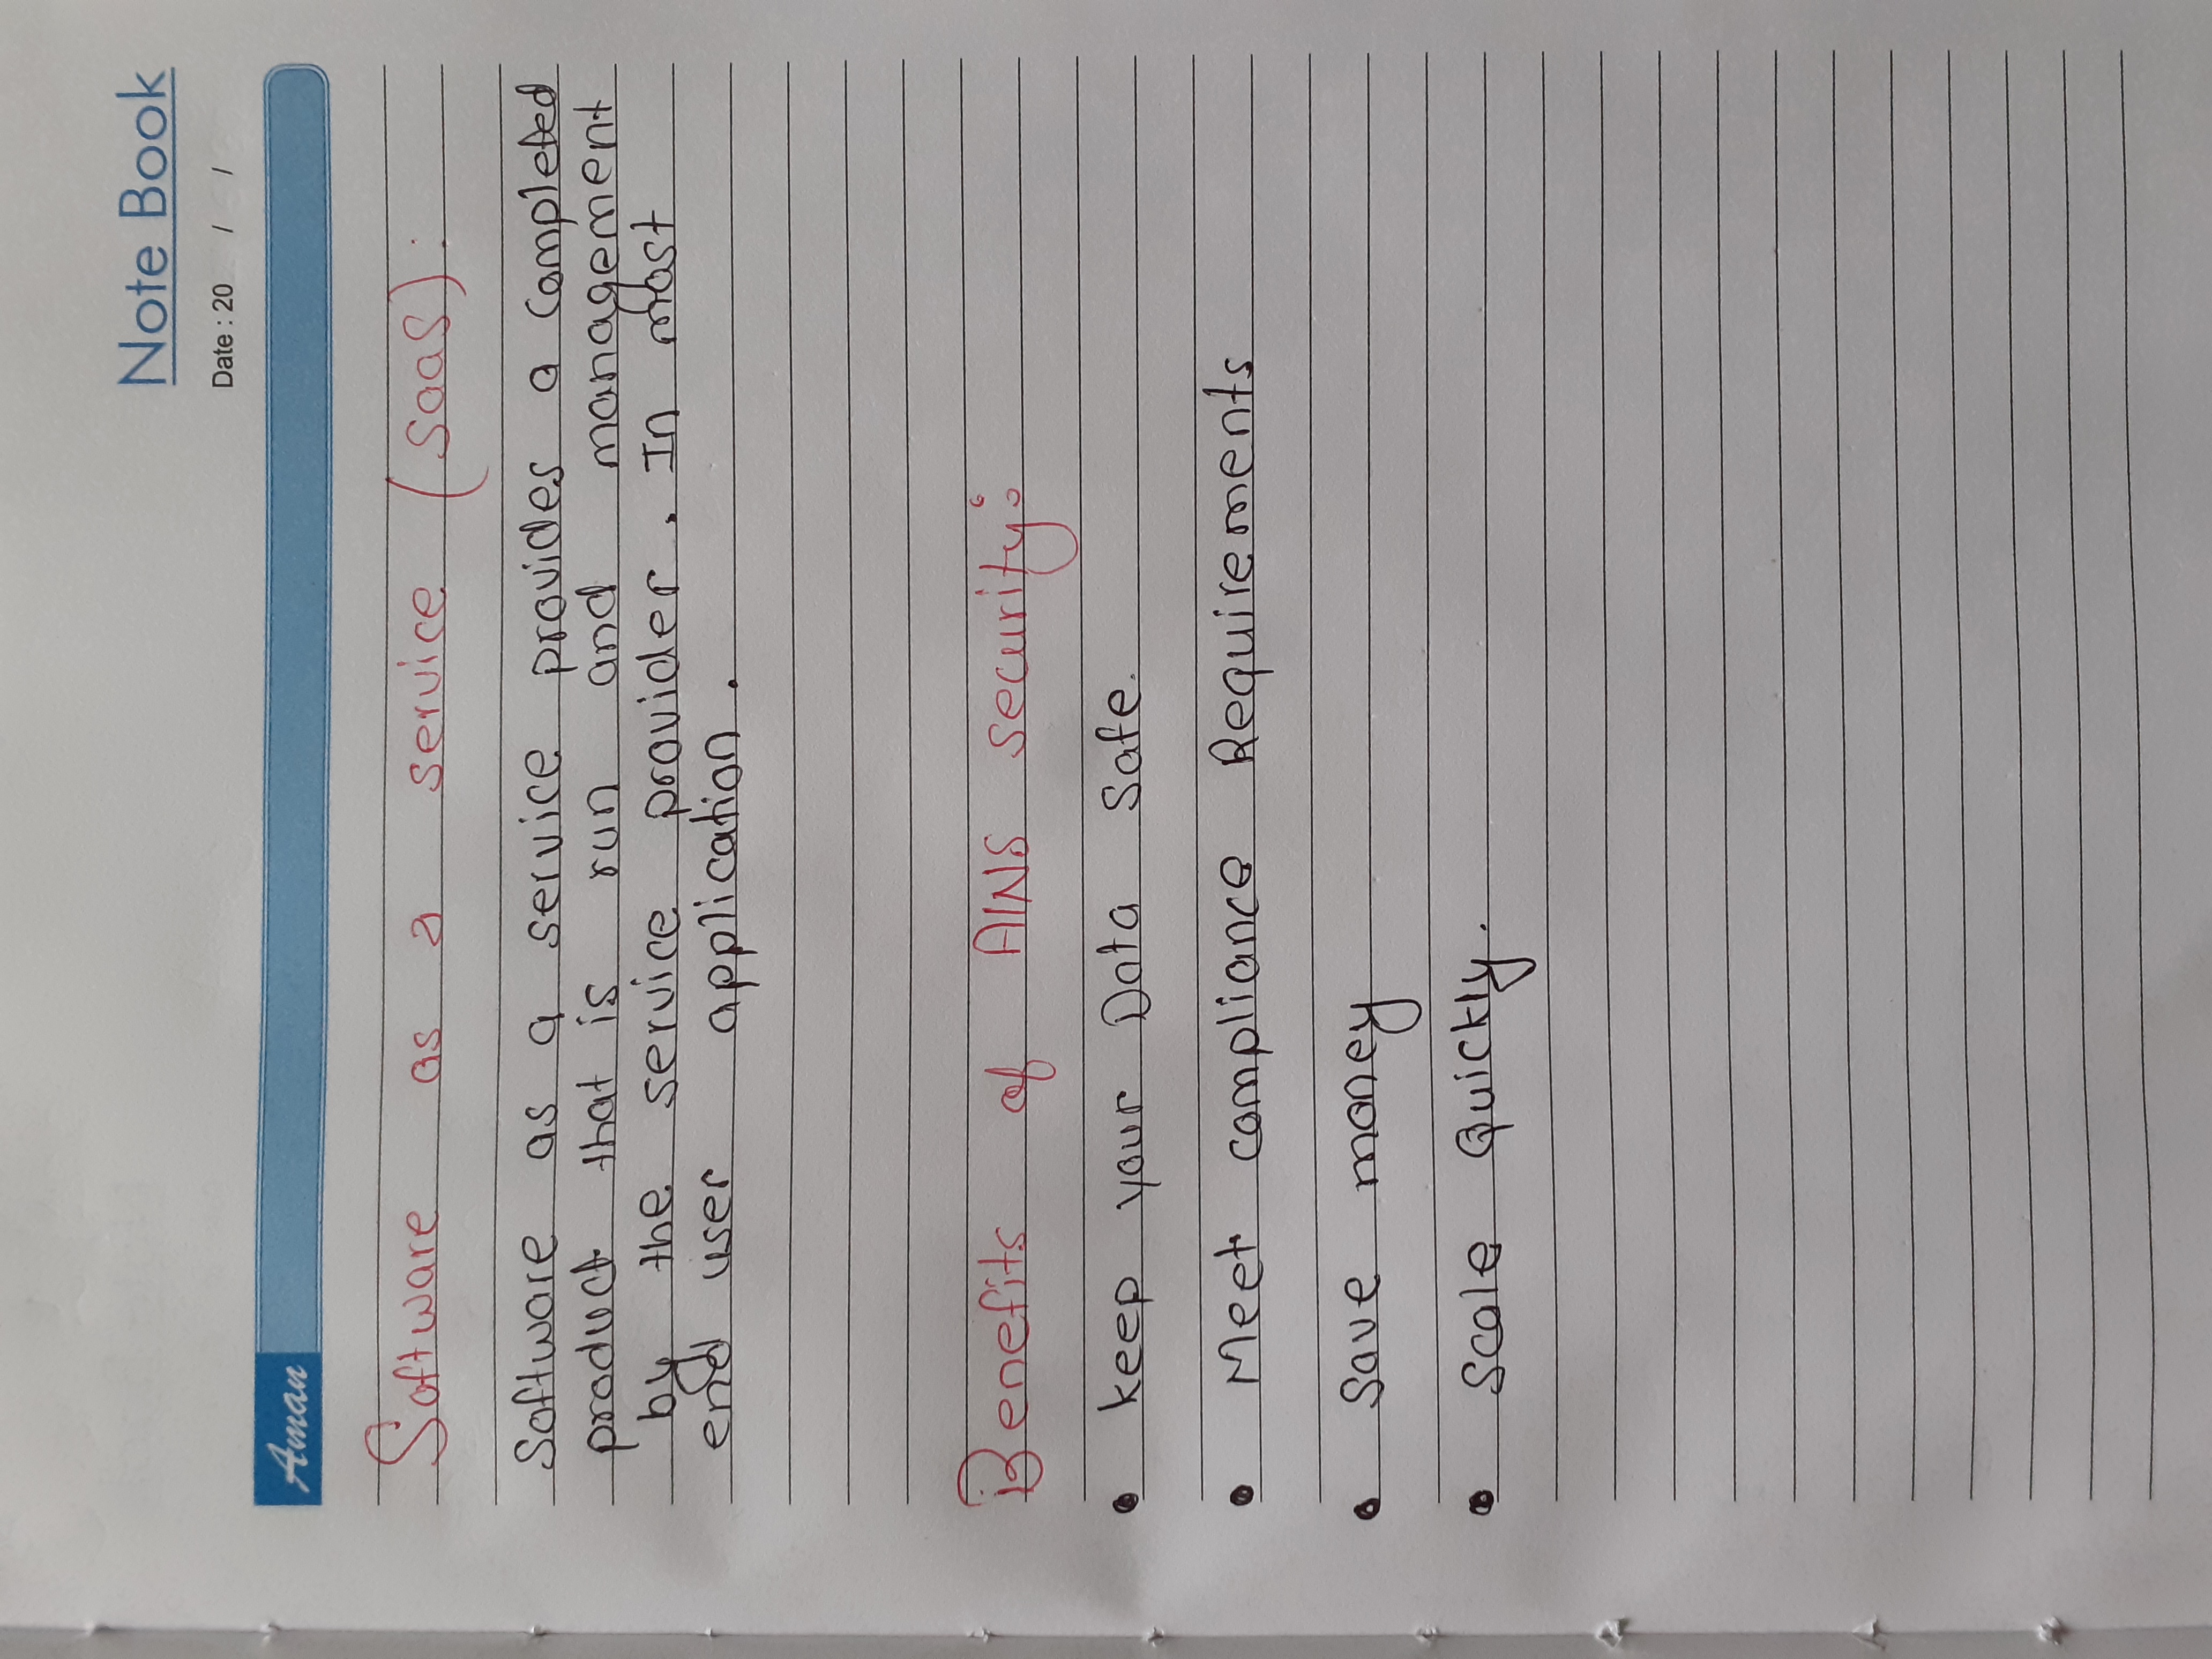 Note Book
Date : 20 / /
Aman
Software as a service (SaaS) :
Software as a service provides a completed
product that is run and management
by the service provider. In most
end user application.
Benefits of AWS security:
• keep your Data Safe.
• Meet compliance Requirements
• Save money
• Scale Quickly.